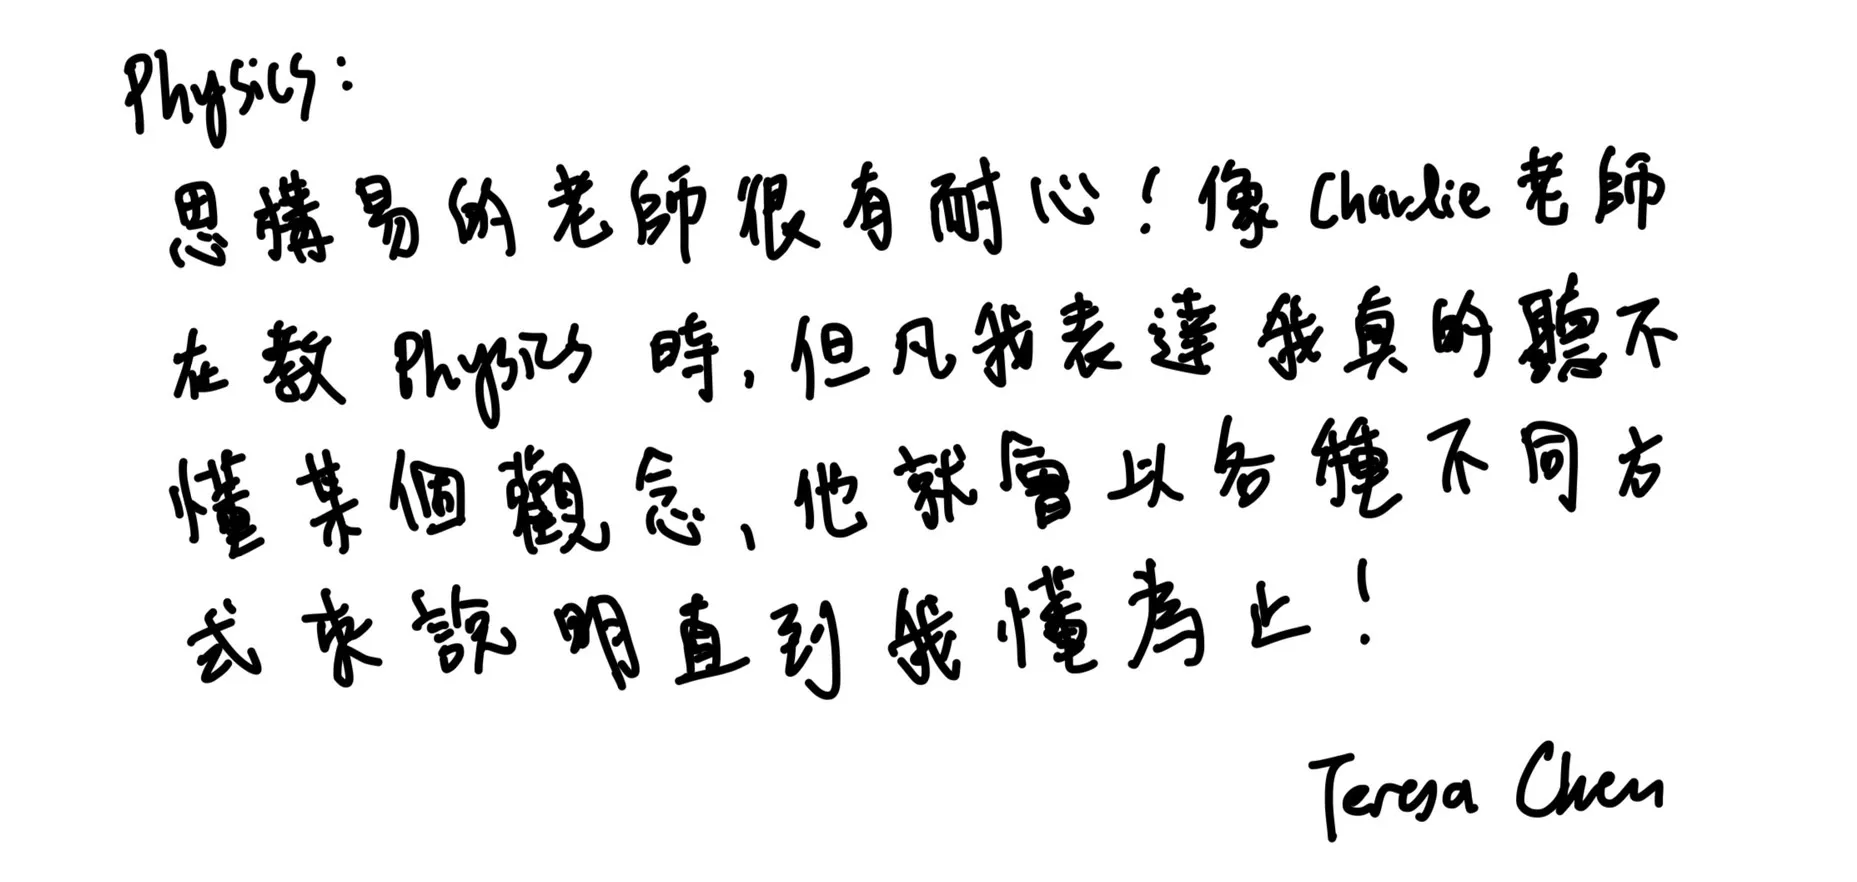 Physics:
思構易的老師很有耐心!像Charlie老師
在教Physics時,但凡我表達我真的聽不
懂某個觀念、他就會以各種不同方
式來說明直到我懂為止!
Teresa Chen